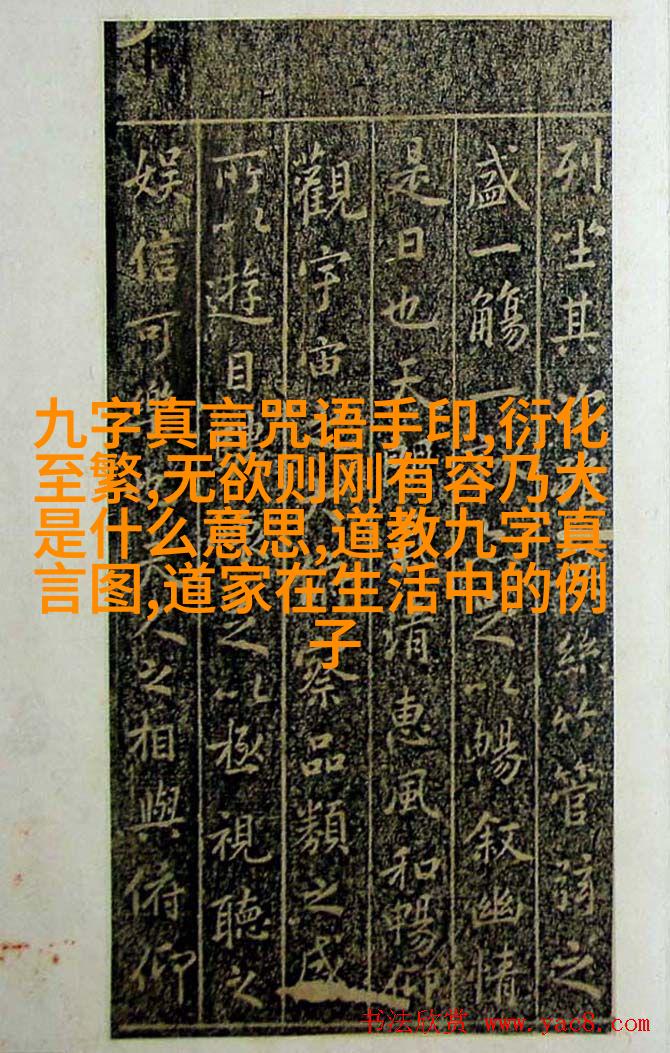 九字真言咒语手印,衍化
至繁,无欲则刚有容乃大
是什么意思,道教九字真
言图,道家在生活中的例
子
列坐其絲竹管弦之
盛一觴一以暢叙幽情
是日也天清惠風和暢仰
觀宇宙察品類之盛
所以遊目之以極視聽之
娱信可樂人之相與俯仰
书法欣赏 www.yac8.com